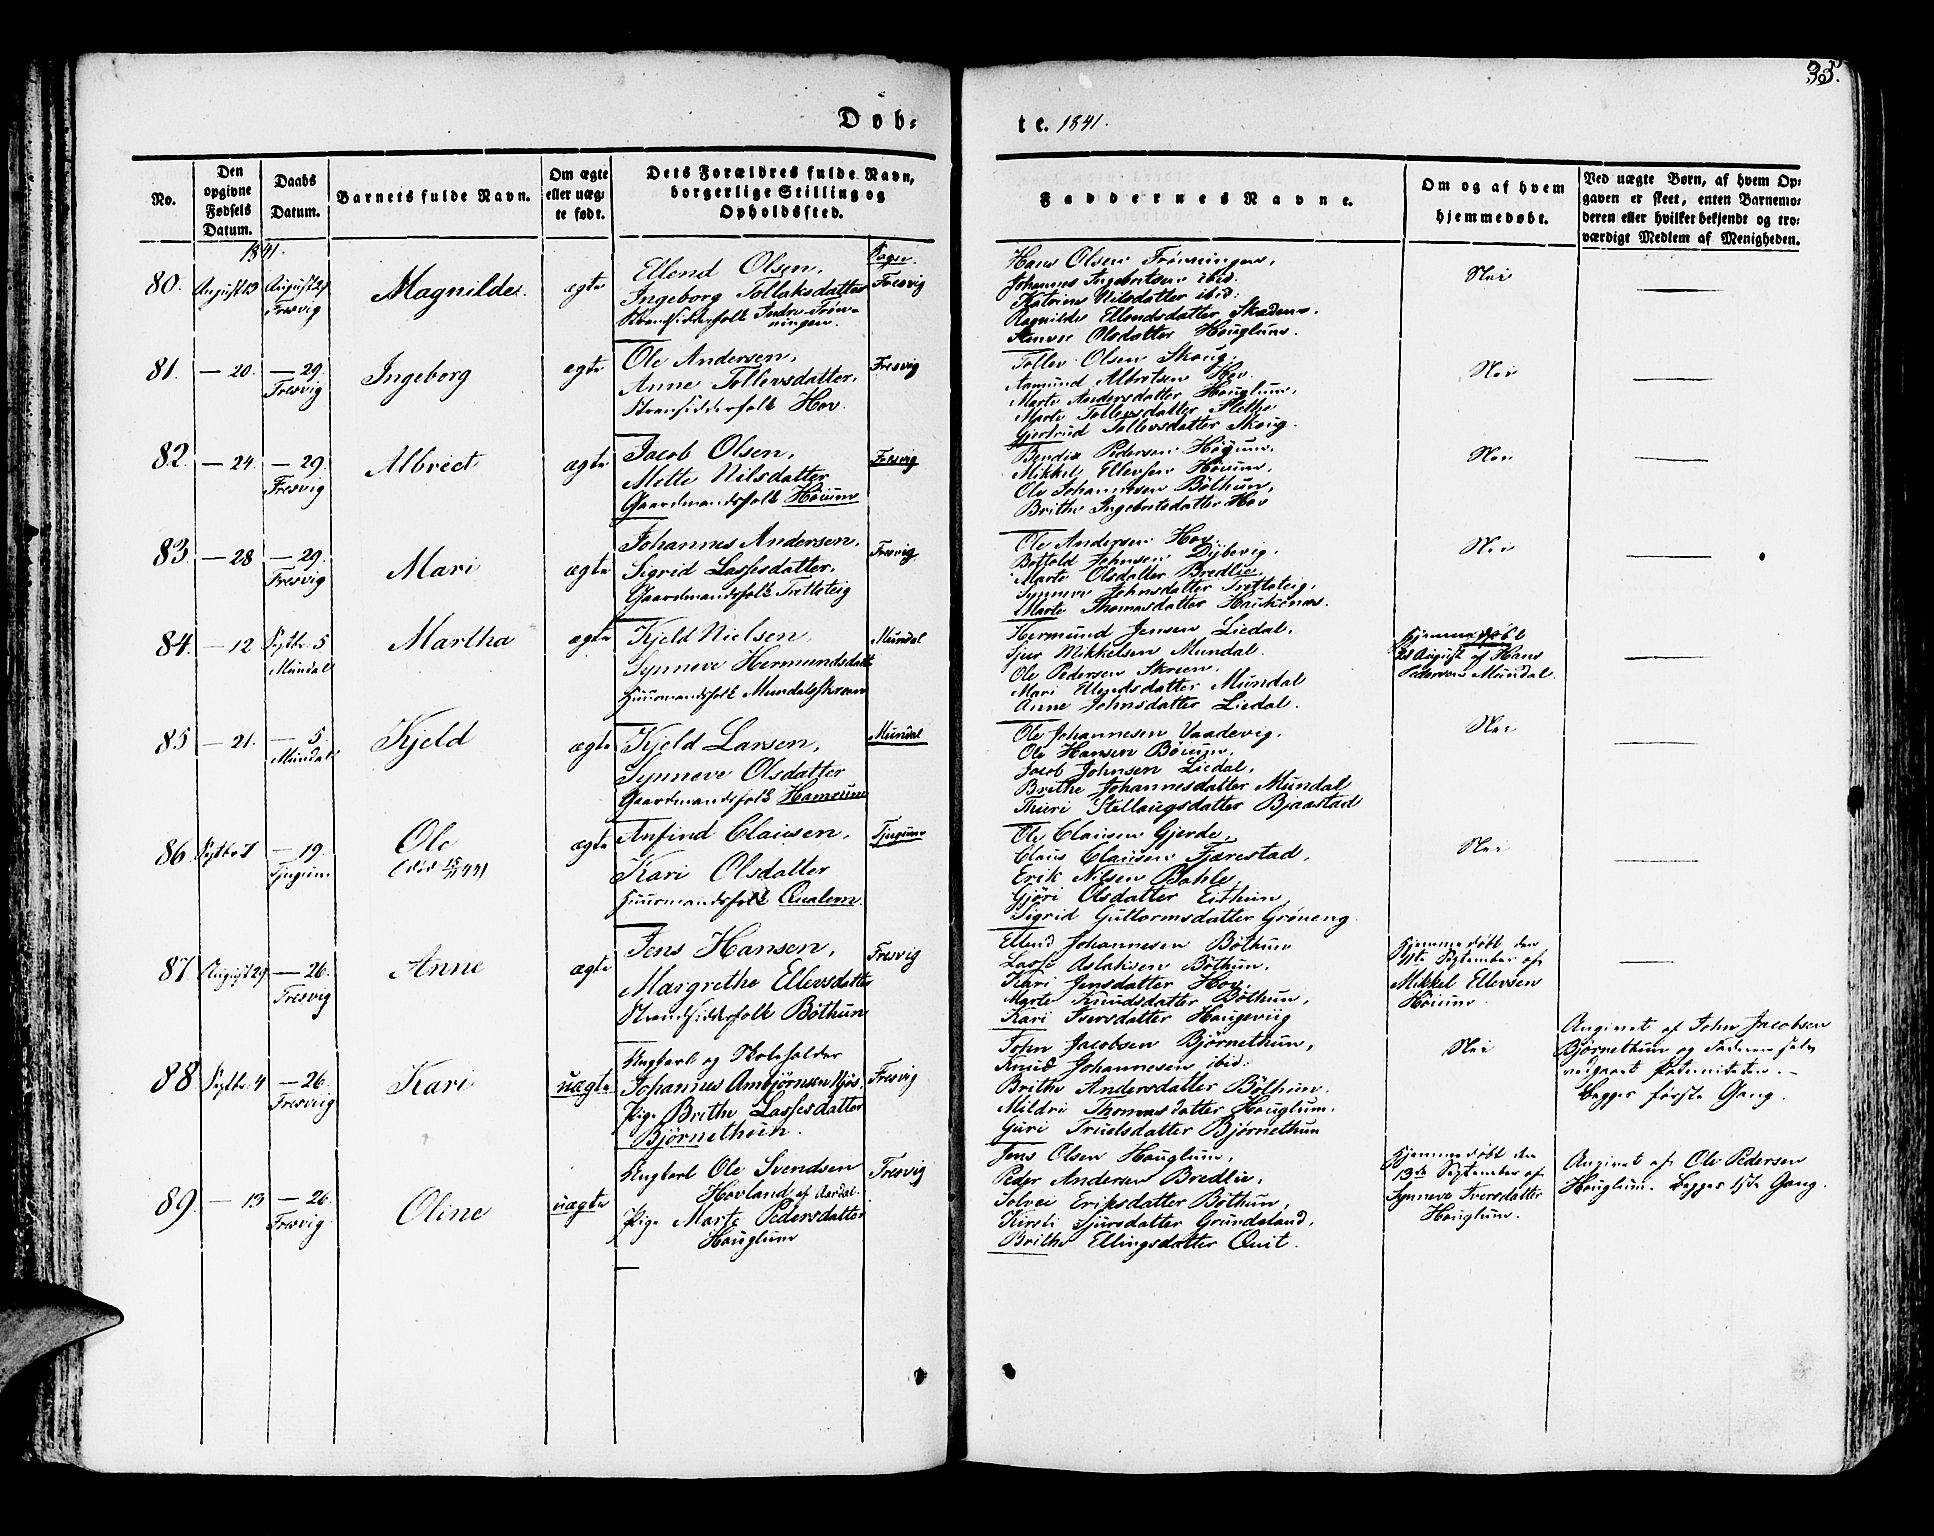 35.
Døb-
te. 1841.
No.
Den opgivne Fødsels Datum.
Daabs Datum.
Barnets fulde Navn.
Om ægte eller uægte født.
Dets Forældres fulde Navn, borgerlige Stilling og Opholdssted.
Faddernes Navne.
Om og af hvem hjemmedøbt.
Ved uægte Børn, af hvem Opgaven er skeet, enten Barnemoderen eller hvilket bekjendt og troværdigt Medlem af Menigheden.
1841.
Sogn.
80. August 13 August 29 Fresvig
Magnilde.
ægte
Ellend Olsen,
Ingeborg Tollaksdatter
Strandsidderfolk Indre Frønningen.
Fresvig
Hans Olsen Frønningen,
Johannes Ingebritsen ibid:
Katrine Nilsdatter ibid:
Ragnilde Ellendsdatter Skaden,
Olsdatter Houglum.
Nei
81. — 20. — 29. Fresvig
Ingeborg
ægte
Ole Andersen,
Anne Tollevsdatter,
Strandsidderfolk Hov.
Fresvig
Tollev Olsen Skoug,
Aamund Albretsen Hov.
Marte Andersdatter Houglum,
Marte Tollevsdatter Slethe
Gjertrud Tollevsdatter Skoug.
Nei
82. — 24. — 29. Fresvig
Albrect
ægte
Jacob Olsen,
Mette Nilsdatter
Gaardmandsfolk Høium
Fresvig
Bendix Pedersen Høyum,
Mikkel Ellevsen Høium,
Ole Johannesen Bøthun,
Brithe Ingebretsdatter Hov
Nei
83. — 28 — 29. Fresvig
Mari
ægte
Johannes Andersen,
Sigrid Lassesdatter,
Gaardmandsfolk Tretteteig
Fresvig
Ole Andersen Hov.
Botfold Johnsen Dybevig,
Marte Olsdatter Bredlie,
Synneve Johnsdatter Tretteteig,
Marte Thomasdatter Haukenæs.
Nei
84. — 12 Septbr. 5 Mundal
Martha
ægte
Kjeld Nielsen
Synneve Hermundsdatt
Huusmandsfolk Mundalsskreen
Mundal
Hermund Jensen Liedal,
Sjur Mikkelsen Mundal.
Ole Pedersen Skreen,
Mari Ellendsdatter Mundal
Anne Johnsdatter Liedal.
Hjemmedøbt
21 August af Hans
Mundal.
85 — 21. — 5. Mundal
Kjeld
ægte
Kjeld Larsen,
Synneve Olsdatter
Gaardmandsfolk Hamrum
Mundal
Ole Johannesen Vaadevig,
Ole Hansen Bøium,
Jacob Johnsen Liedal,
Brithe Johannesdatter Mundal
Thuri Stellaugsdatter Bjaastad
Nei
86 Septbr 7 — 19. Tjugum
Ole
(død 15/11 41)
ægte
Anfind Clausen,
Kari Olsdatter
Huusmandsfolk Qualem.
Tjugum
Ole Clausen Gjerde,
Claus Clausen Fjærestad,
Erik Nilsen Bahle,
Gjøri Olsdatter Eithun,
Sigrid Guttormsdatter Grøneng.
Nei
87. August 29 — 26. Fresvig
Anne
ægte
Jens Hansen,
Margrethe Ellevsdatter
Strandsidderfolk Bøthun
Fresvig
Ellend Johannesen Bøthun
Lasse Aslaksen Bøthun,
Kari Jensdatter Hov,
Marte Knudsdatter Bøthun,
Kari Iversdatter Hougeviig
Hjemmedøbt den
September af
Mikkel Ellevsen
Høium.
88 Septbr. 4 — 26. Fresvig
Kari
uægte
Ungkarl og Skoleholder
Johannes Ambjørnsen Njøs.
Pige Brithe Lassesdatter
Bjørnethun.
Fresvig
John Jacobsen Bjørnethun,
Knud Johannesen ibid:
Brithe Andersdatter Bøthun.
Mildri Thomasdatter Houglum.
Guri Truelsdatter Bjørnethun
Nei
Angivet af John Jacobsen
Bjørnethun og Faderen selv
vedgaaet Paterniteten. —
Begges første Gang.
89. — 13 — 26. Fresvig
Oline
uægte
Ungkarl Ole Svendsen
Hovland af Aardal.
Pige Marte Pedersdatter
Houglum
Fresvig
Jens Olsen Houglum,
Peder Andersen Bredlie,
Solvei Eriksdatter Bøthun,
Kirsti Sjursdatter Grundeland,
Brithe Ellingsdatter Quit.
Hjemmedøbt den
13de September af
Synneve Iversdatter
Houglum.
Angivet af Ole Pedersen
Houglum. Begges 1ste Gang.